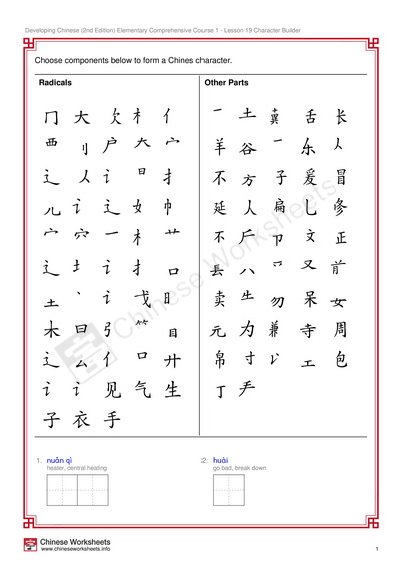 Developing Chinese (2nd Edition) Elementary Comprehensive Course 1 - Lesson 19 Character Builder
Choose components below to form a Chines character.
Radicals
冂 大 欠 木 亻
覀 刂 户 大 宀
辶 人 讠 日 扌
儿 讠 辶 女 巾
宀 穴 一 木 艹
辶 土 讠 扌 口
土 丶 讠 戈 日
木 回 弓 ⺮ 目
辶 厶 亻 口 廾
讠 讠 见 气 生
子 衣 手
Other Parts
一 土 舌 长
羊 谷 一 乐 人
不 方 子 爰 冒
延 人 扁 乚
不 卩 文 正
八 又 前
卖 生 勿 呆 女
元 为 兼 寺 周
帛 寸 工 包
丁
Chinese Worksheets
1. nuǎn qì
heater, central heating
2. huài
go bad, break down
Chinese Worksheets
www.chineseworksheets.info
1